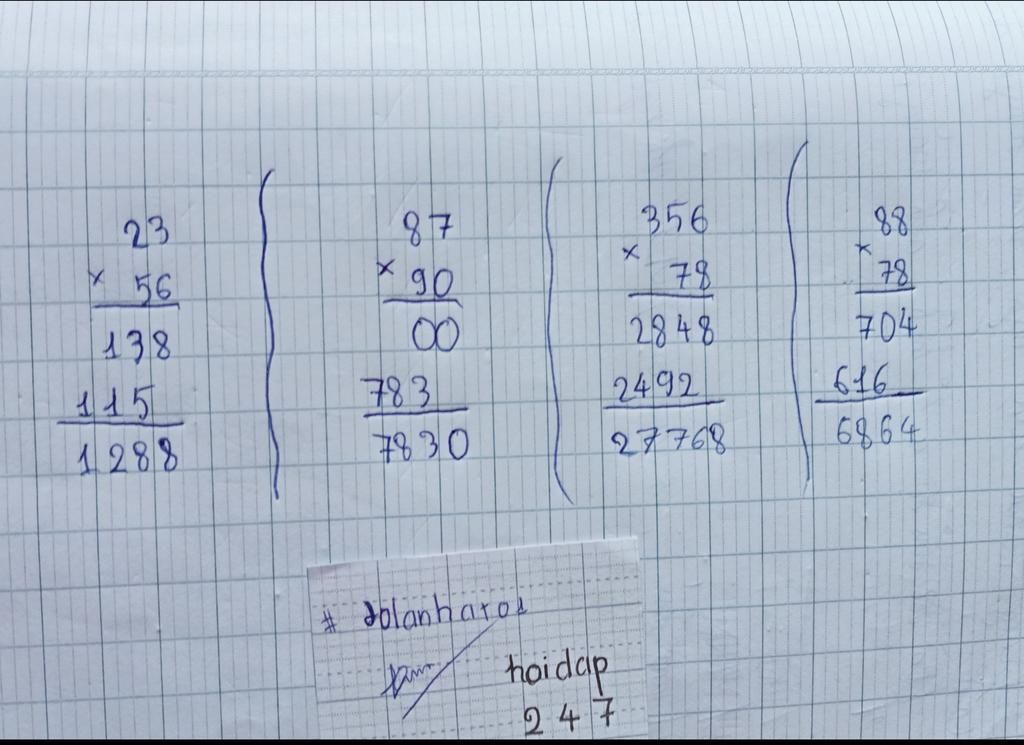 23
× 56
138
115
1288
87
× 90
00
783
7830
356
× 78
2848
2492
27768
88
× 78
704
616
6864
hoidap
247